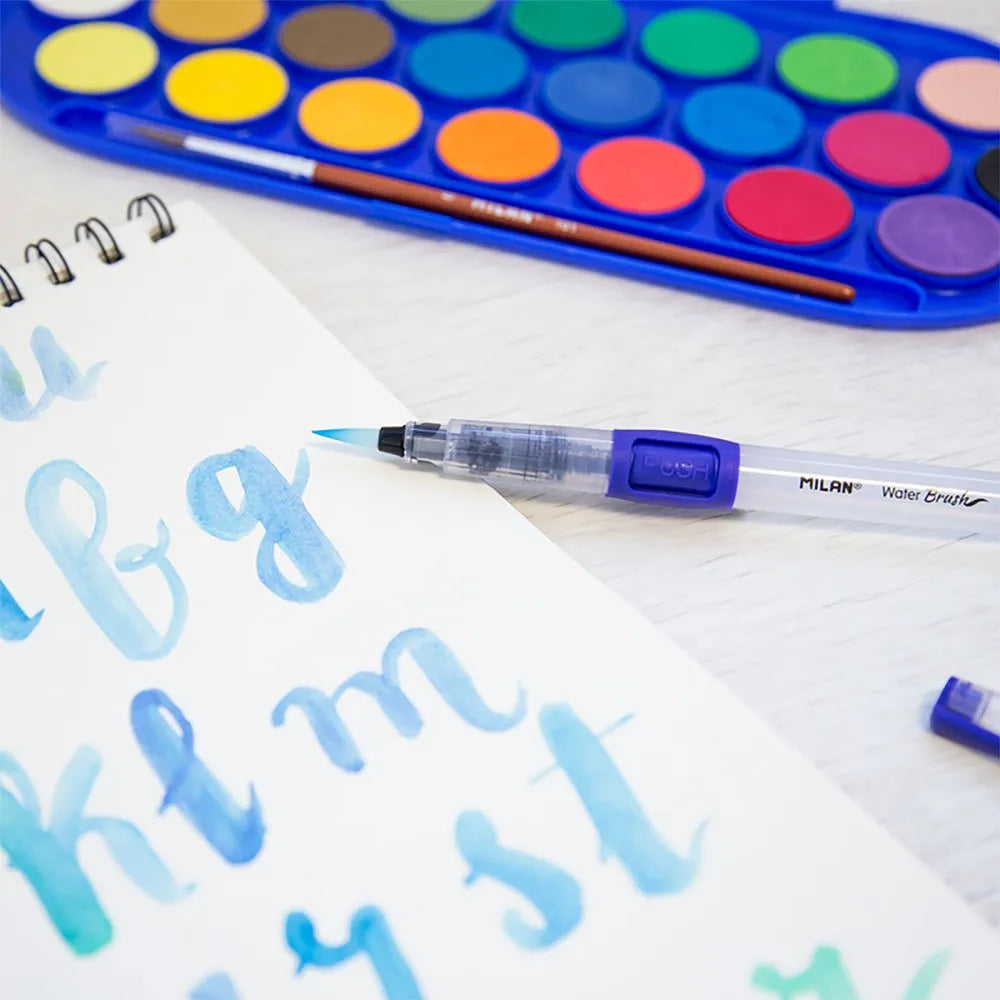 MILAN 121
PUSH
MILAN® Water Brush
u
b g
k l m
y s t